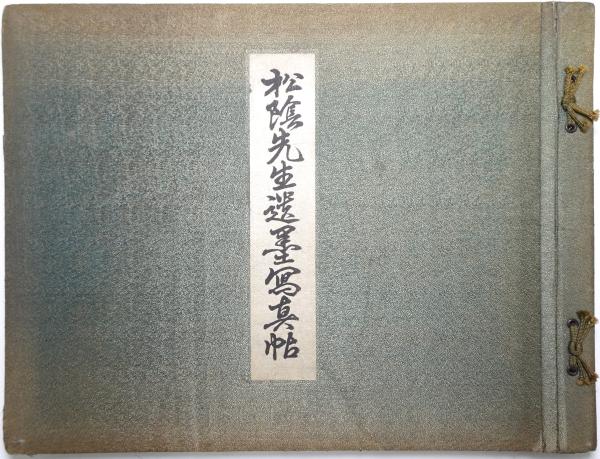 松陰先生遺墨寫真帖